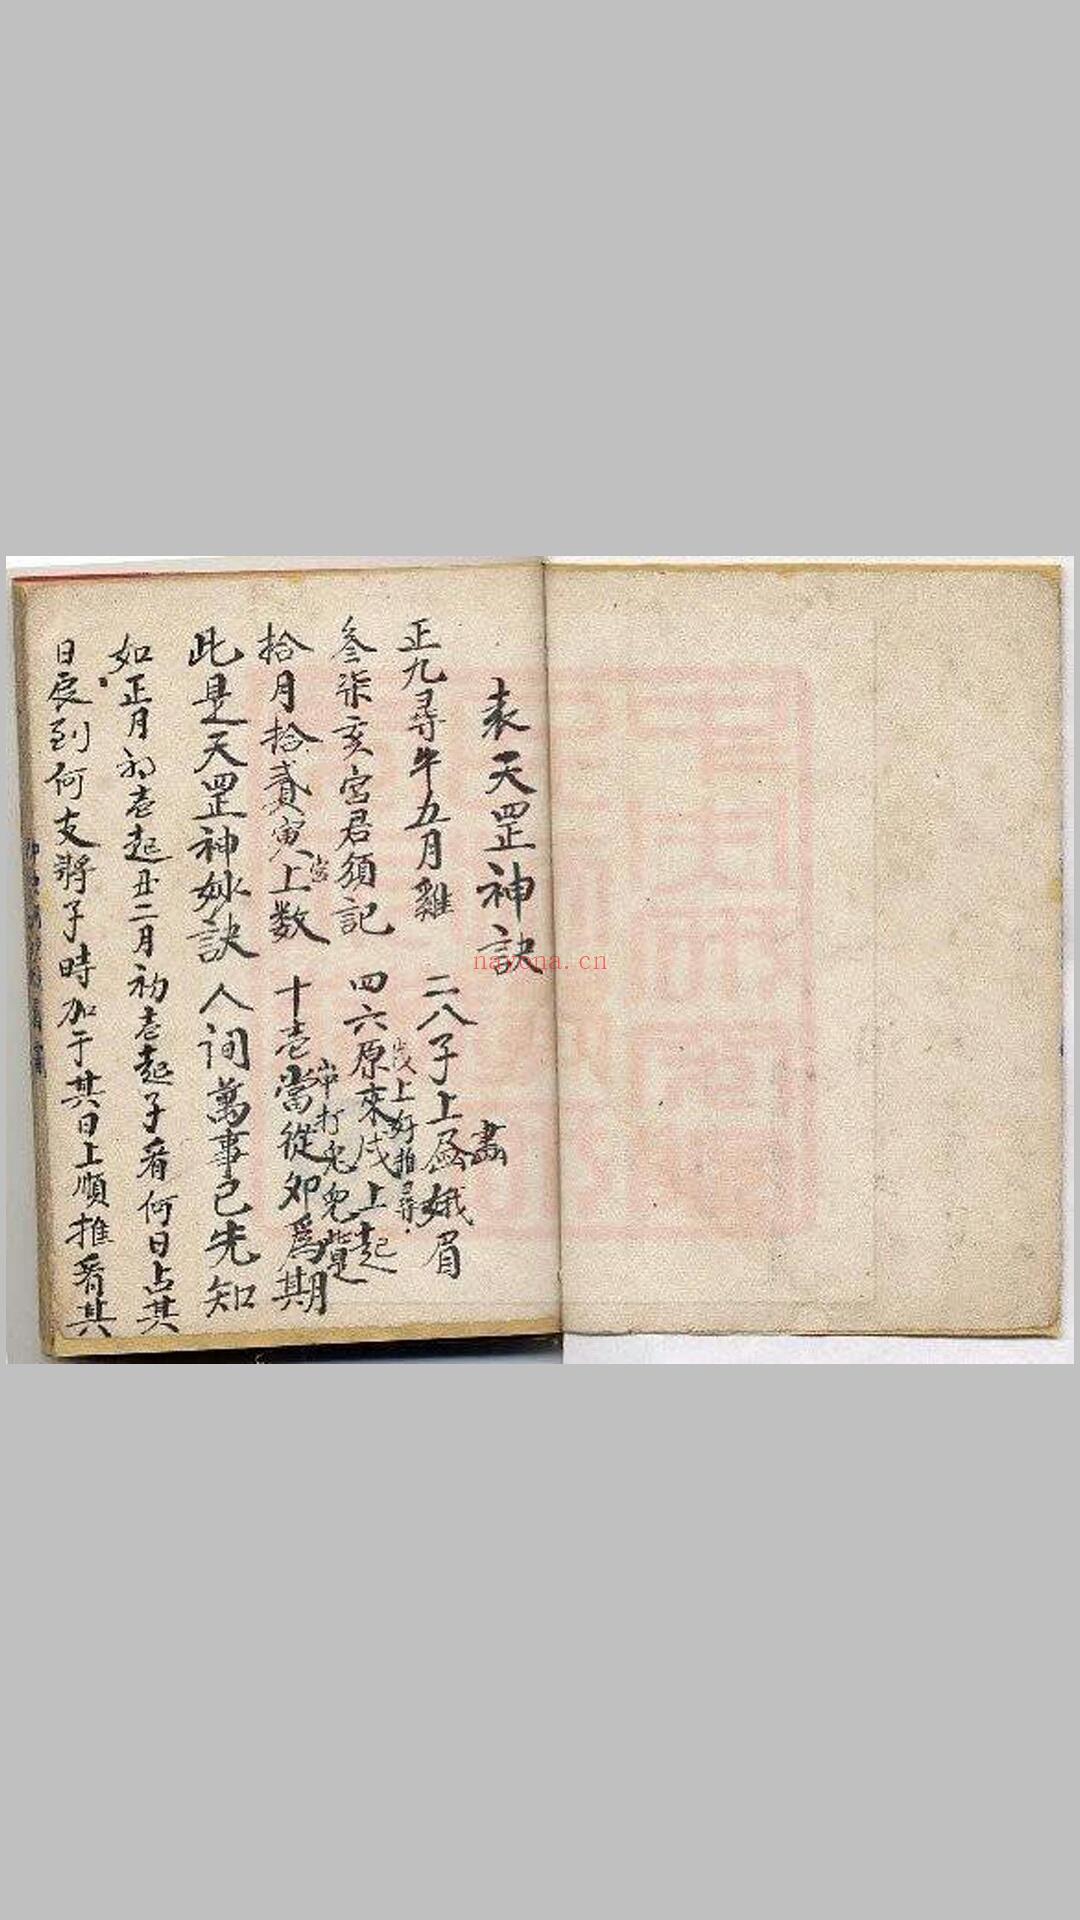 袁天罡神訣
正九尋牛五月雞　二八子上蛾眉
畫
叁柒亥宮君須記　四六原來戌上起
戌上好推尋
拾月拾貳寅上數　十壱當從卯爲期
當
此是
此是天罡神妙訣　人间萬事已先知
如正月初壱起丑二月初壱起子看何日占其
日辰到何支將子時加于其日上順推看其
nayona.cn